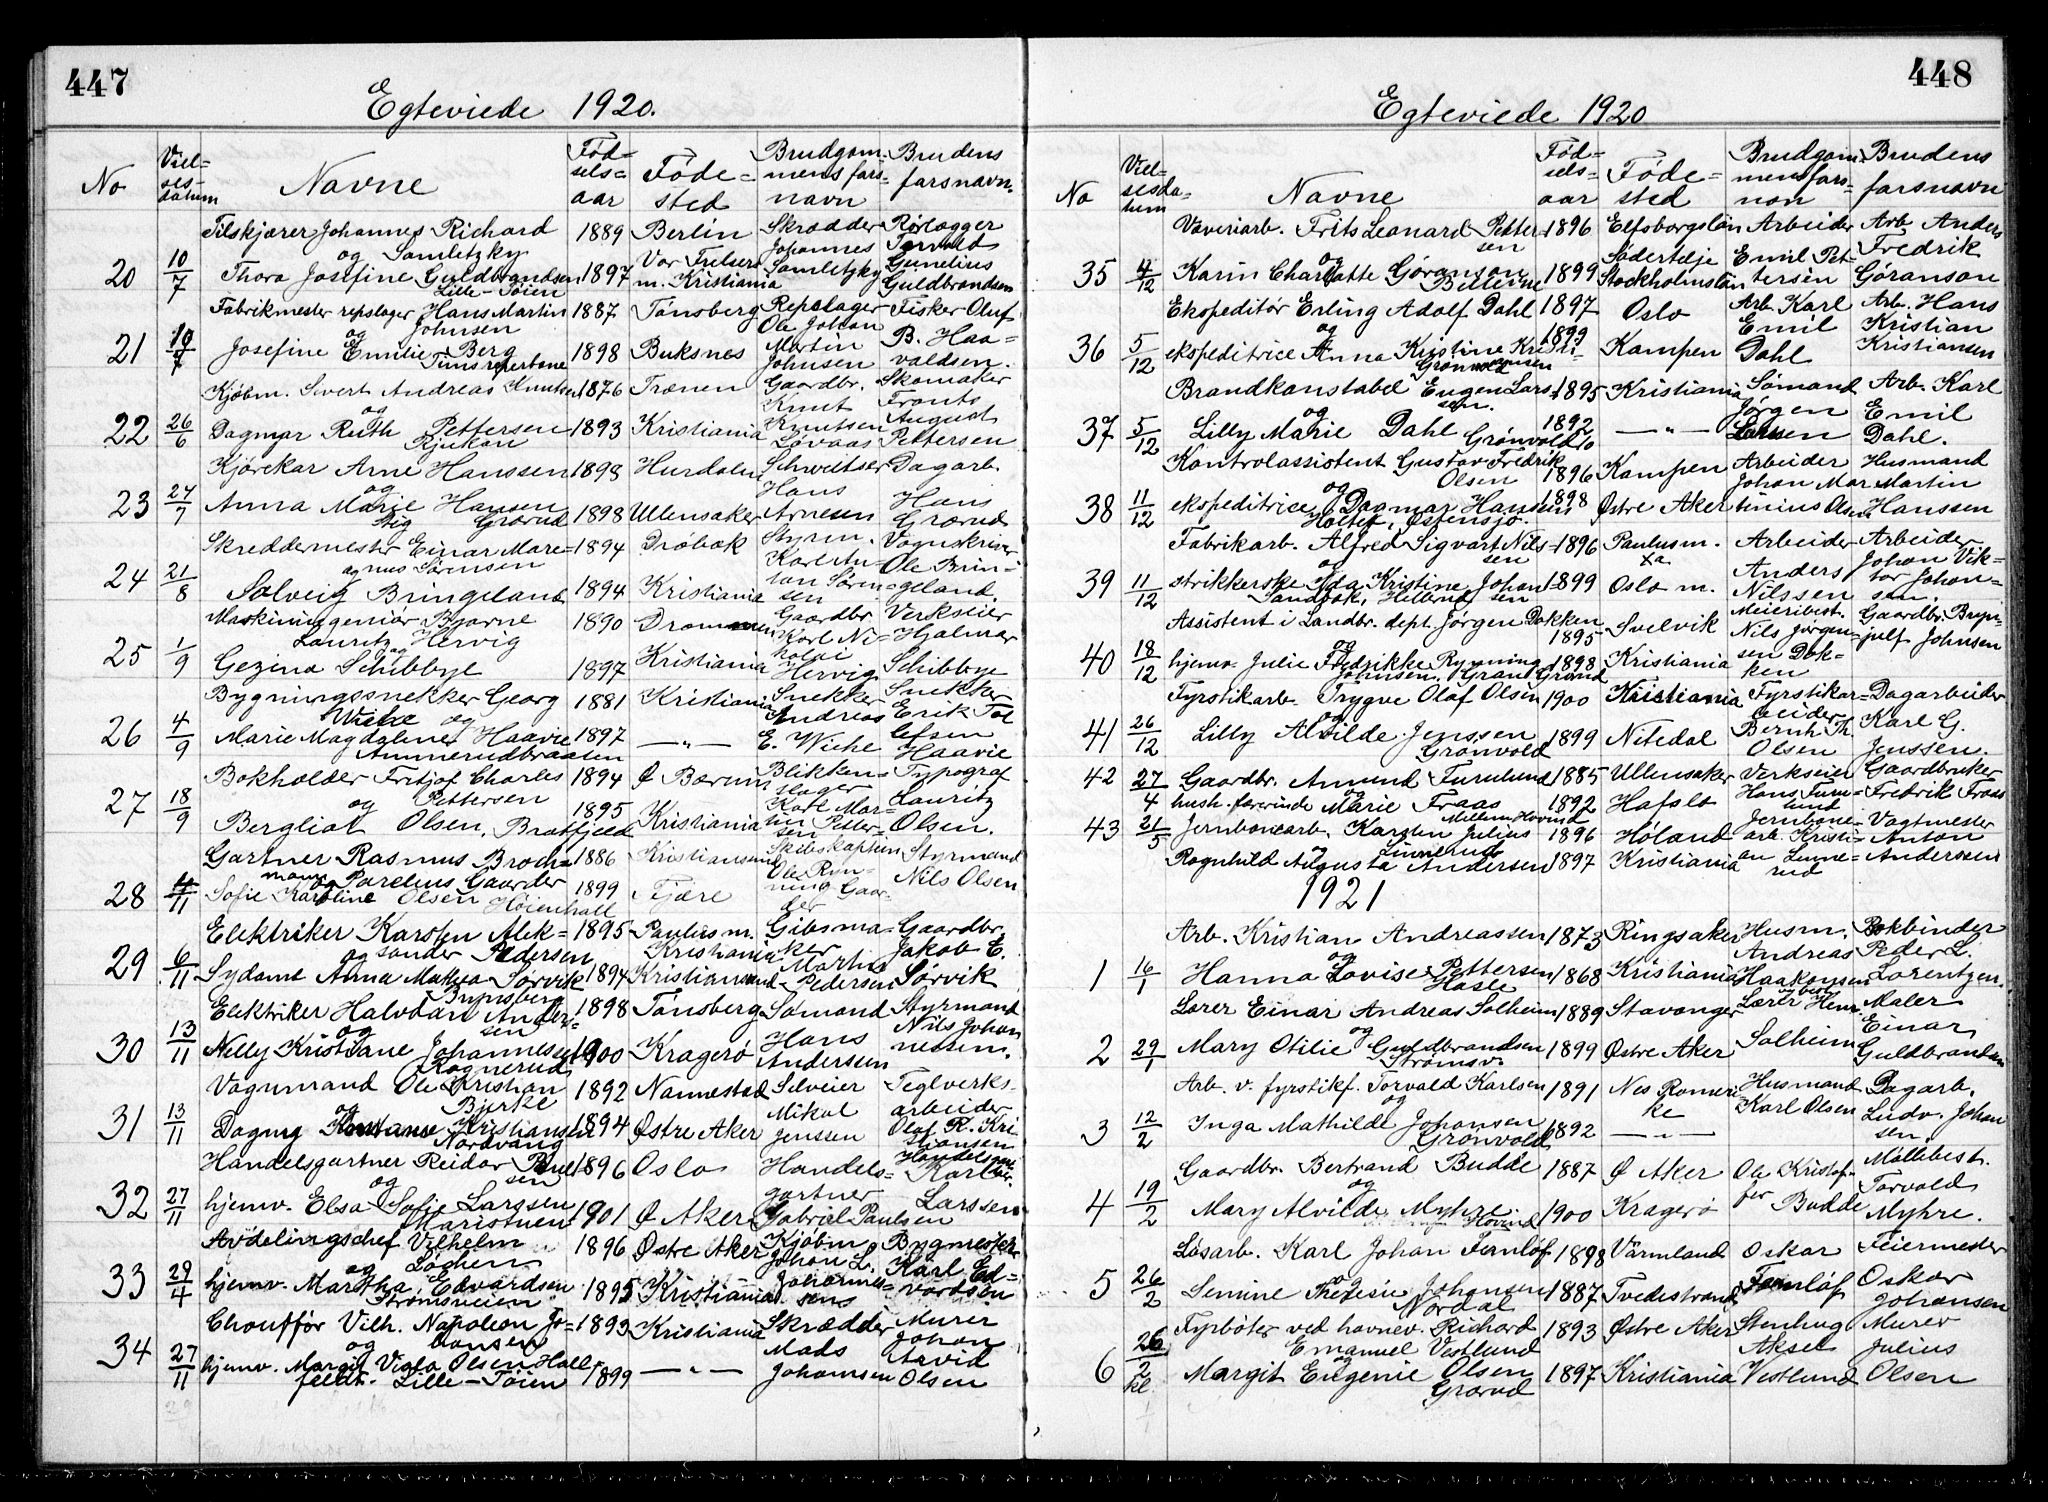 447
Egteviede 1920.
No | Viel-sesdatum | Navne | Fødselsaar | Fødested | Brudgommens farsnavn | Brudens farsnavn
Tilskjærer Johannes Richard Samletzky | 1889 | Berlin | Skrædder Johannes Samletzky | Rørlægger Torvald
20 | 10/7 | og Thora Josefine Guldbrandsen Lille-Tøien | 1897 | Vor Frelsers m. Kristiania | Gunelius Guldbrandsen
Fabrikmester repslager Hans Martin Johnsen | 1887 | Tønsberg | Repslager Ole Johan Martin Johnsen | Fisker Oluf B. Haavaldsen.
21 | 10/7 | og Josefine Emilie Berg | 1898 | Buksnes
Kjøbm. Sivert Andreas Knutsen | 1876 | Trænen | Gaardbr. Knut Knutsen Løvaas | Skomaker Frants August Pettersen
22 | 26/6 | og Dagmar Ruth Pettersen Rjukan | 1893 | Kristiania
Kjørekar Arne Hanssen | 1893 | Hurdalen | Schweitser Hans Arnesen | Dagarb. Hans Grorud
23 | 27/7 | og Anna Marie Hansen Stig Grorud | 1898 | Ullensaker
Skreddermester Einar Maregnus Sørensen | 1894 | Drøbak | Styrm. Karl Anton Sørensen | Vognskriver Ole Bringeland.
24 | 21/8 | Solveig Bringeland | 1894 | Kristiania
Maskiningeniør Bjarne Lauritz Hervig | 1890 | Drammen | Gaardbr. Karl Nikolai Hervig | Verkseier Hjalmar Schibbye
25 | 1/9 | og Gezina Schibbye | 1897 | Kristiania
Bygningssnekker Georg Wiche | 1881 | Kristiania | Snekker Andreas E. Wiche | Snekker Erik Tollefsen Haavie
26 | 4/9 | og Marie Magdalene Haavie Ammerudbraaten | 1897 | — „ —
Bokholder Fritjof Charles Pettersen | 1894 | Ø Bærum | Blikkenslager Karl Martin Pettersen | Typograf Lauritz Olsen.
27 | 18/9 | og Bergliot Olsen, Bratfjeld | 1895 | Kristiania
Gartner Rasmus Brochmann Parelius Gaarder | 1886 | Kristiansund | Skibskaptein Ole Rynning Gaarder | Styrmand Nils Olsen
28 | 4/11 | og Sofie Karoline Olsen Høienhall | 1899 | Fjære
Elektriker Karsten Aleksander Pedersen | 1895 | Paulus m. Kristiania | Gibsmaker Martin Pedersen | Gaardbr. Jakob E. Sørvik
29 | 6/11 | og Sydame Anna Mathea Sørvik Bynsberg | 1894 | Kristiansund
Elektriker Halvdan Andersen | 1898 | Tønsberg | Sømand Hans Andersen | Styrmand Nils Johannessen.
30 | 13/11 | og Nelly Kristiane Johannessen Rognerud | 1900 | Kragerø
Vognmand Ole Kristian Bjerke | 1892 | Nannestad | Selveier Mikal Jenssen | Teglverksarbeider Olaf K. Kristiansen
31 | 13/11 | og Dagny Konstanse Kristiansen Nordvang | 1894 | Østre Aker
Handelsgartner Reidar Paulsen | 1896 | Oslo | Handelsgartner Gabriel Paulsen | Handelsgartner Karl Larssen
32 | 27/11 | og hjemv. Elsa Sofie Larssen Maristuen | 1901 | Ø Aker
Avdelingschef Vilhelm Løchen | 1896 | Østre Aker | Kjøbm. Johan L. Johannessens | Bygmester Karl Edvardsen
33 | 29/4 | og hjemv. Martha Edvardsen Strømsveien | 1895 | Kristiania
Chauffør Vilh. Napoleon Johansen | 1893 | Kristiania | Skrædder Mads Johansen | Murer Johan Arvid Olsen
34 | 27/11 | og hjemv. Margit Viola Olsen Hallfeldt. Lille-Tøien | 1899 | — „ —
448
Egteviede 1920
No | Vielsesdatum | Navne | Fødselsaar | Fødested | Brudgommens farsnavn | Brudens farsnavn
Væveriarb. Frits Leonard Pettersen | 1896 | Elfsborgslän | Arbeider Emil Pettersen | Arb. Anders Fredrik Göranson
35 | 4/12 | og Karin Charlatte Göranson | 1899 | Södertelje Stockholmslän
Ekspeditør Erling Adolf Dahl | 1897 | Oslo | Arb. Karl Emil Dahl | Arb. Hans Kristian Kristiansen
36 | 5/12 | og ekspeditrice Anna Kristine Kristiansen Grønvold | 1899 | Kampen
Brandkonstabel Eugen Larssen. | 1895 | Kristiania | Sømand Jørgen Larssen | Arb. Karl Emil Dahl.
37 | 5/12 | og Lilly Marie Dahl Grønvold | 1892 | — „ —
Kontrolassistent Gustav Fredrik Olsen | 1896 | Kampen | Arbeider Johan Martinius Olsen | Husmand Martin Hanssen
38 | 11/12 | og ekspeditrice Dagmar Hanssen Holtet, Østensjø. | 1898 | Østre Aker
Fabrikarb. Alfred Sigvart Nilssen | 1896 | Paulus m. Xa | Arbeider Anders Nilssen | Arbeider Johan Viktor Johansen.
39 | 11/12 | og strikkerske Ida Kristine Johansen Sandbak, Hellerud | 1899 | Oslo m.
Assistent i Landbr. dept. Jørgen Dokken | 1895 | Svelvik | Meieribest. Nils Jørgensen Dokken | Gaardbr. Brynjulf Johnsen
40 | 18/12 | og hjemv. Julie Fredrikke Rynning Johnsen, Grand Grorud | 1898 | Kristiania
Fyrstikarb. Trygve Olaf Olsen | 1900 | Kristiania | Fyrstikarbeider Bernh. Th. Olsen | Dagarbeider Karl G. Jenssen.
41 | 26/12 | og Lilly Alvilde Jenssen Grønvold | 1899 | Nitedal
42 | 27/4 | Gaardbr. Amund Furulund | 1885 | Ullensaker | Verkseier Hans Furulund | Gaardbruker Fredrik Fraas
og hush. forerinde Marie Fraas Mellem Hovind | 1892 | Hafslo
43 | 21/5 | Jernbanearb. Karsten Julius Linnerud | 1896 | Høland | Jernbanearb. Kristian Linnerud | Vagtmester Anton Anderssen
og Ragnhild Augusta Anderssen | 1897 | Kristiania
1921
Arb. Kristian Andreassen | 1873 | Ringsaker | Husm. Andreas Haakonsen | Bokbinder Peder L. Lorentzen.
1 | 16/1 | og Hanna Lovise Pettersen Hasle | 1868 | Kristiania
Lærer Einar Andreas Solheim | 1889 | Stavanger | Lærer Solheim | Maler Einar Guldbrandsen
2 | 29/1 | og Mary Otilie Guldbrandsen Strømsv. | 1899 | Østre Aker
Arb. v. fyrstikf. Torvald Karlsen | 1891 | Nes Romerike | Husmand Karl Olsen | Dagarb. Ludv. Johansen.
3 | 12/2 | og Inga Mathilde Johansen Grønvold | 1892 | — „ —
Gaardbr. Bertrand Budde | 1887 | Ø Aker | Ole Kristoffer Budde | Møllebest. Torvald Myhre.
4 | 19/2 | og Mary Alvilde Myhre Hovind | 1900 | Kragerø
Løsarb. Karl Johan Fernlöf | 1898 | Värmland | Oskar Fernlöf | Feiermester Oskar Johansen
5 | 26/2 | og Semine Theresie Johansen Nordal | 1887 | Tvedestrand
Fyrbøter ved havnev. Richard Emanuel Vestlund | 1893 | Østre Aker | Stenhug Aksel Vestlund | Murer Julius Olsen
6 | 26/2 kl. | og Margit Eugenie Olsen Grorud | 1897 | Kristiania